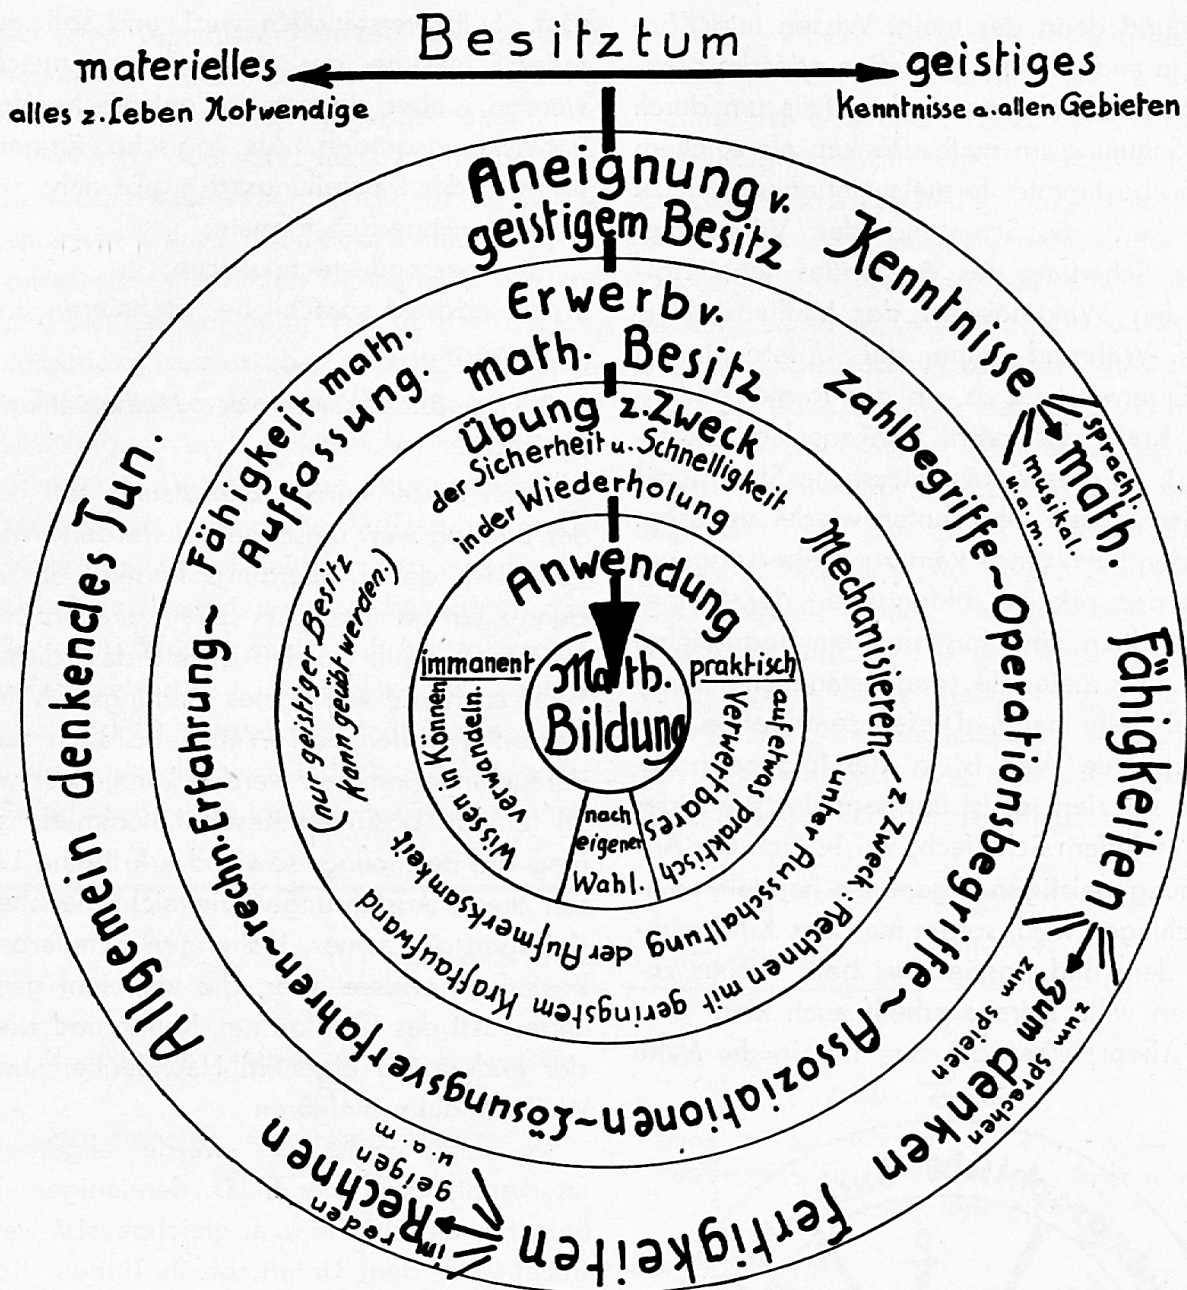 Besitztum
materielles
geistiges
alles z. Leben Notwendige
Kenntnisse a. allen Gebieten
Aneignung v.
geistigem Besitz
Kenntnisse
sprachl.
math.
musikal.
u.a.m.
Fähigkeiten
zum sprechen
zum denken
zum spielen
Fertigkeiten
im reden
Rechne
geigen
u.a.m
Allgemein denkendes Tun.
Erwerb v.
math. Besitz
Zahlbegriffe~Operationsbegriffe~Assoziationen~Lösungsverfahren~rechn. Erfahrung~Fähigkeit math.
Auffassung.
Übung z. Zweck
der Sicherheit u. Schnelligkeit
in der Wiederholung
Mechanisieren z. Zweck: Rechnen mit geringstem Kraftaufwand
unter Ausschaltung der Aufmerksamkeit
(nur geistiger Besitz
kann geübt werden.)
Anwendung
immanent
Wissen in Können
verwandeln.
praktisch
auf etwas praktisch
Verwertbares
nach
eigener
Wahl.
Math.
Bildung